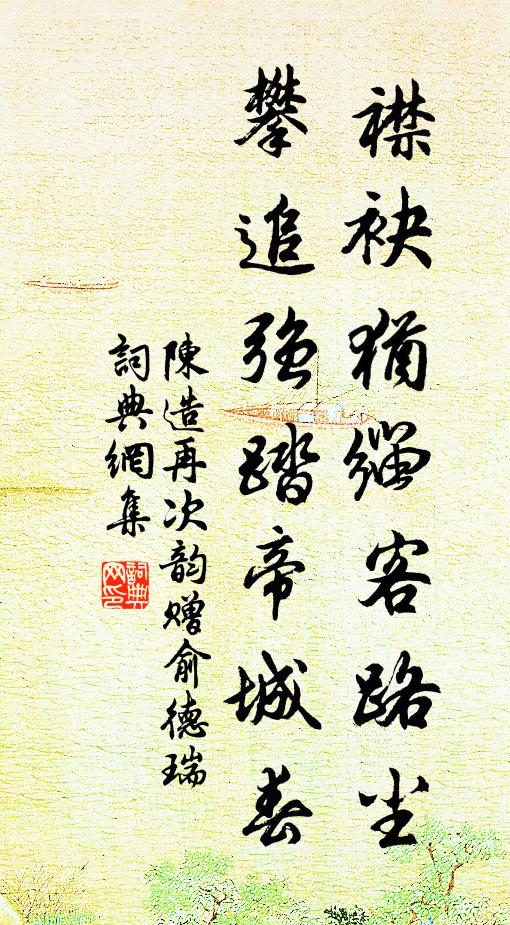 襟袂猶纏客路尘
攀追強踏帝城春
陳造再次韵贈俞德瑞
詞典網集
詞典网印